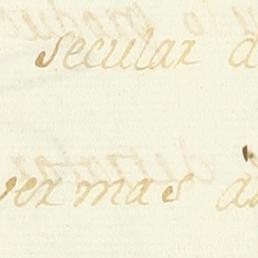 secular d
ver mas a